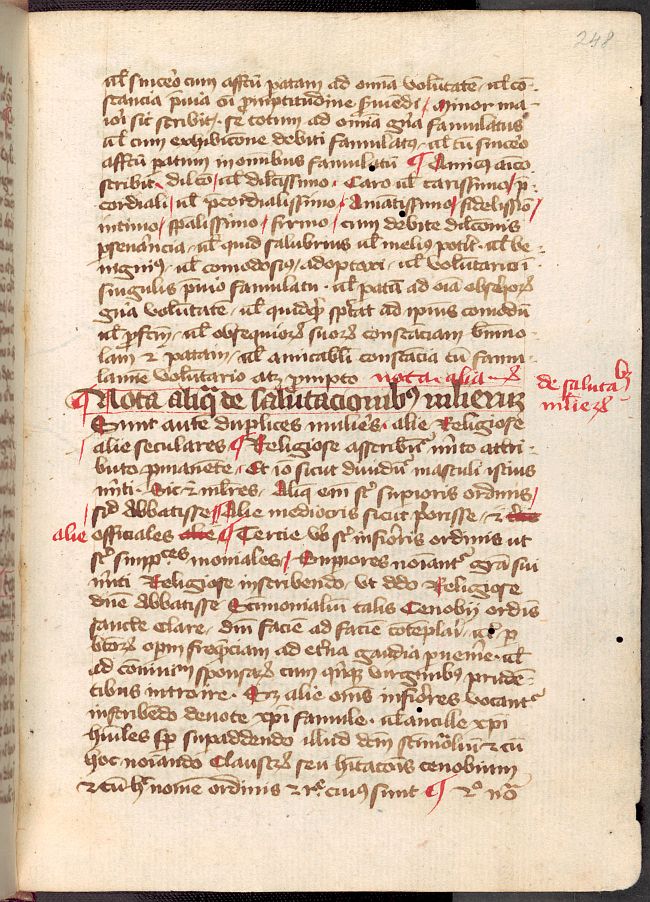 248
ul sincero cum affcu patam ad omia voluntate ul con
stancia pmia oi pmptitudine fuiendi / Minor ma
iori sic scribit / se totum ad omia gna famulatus
ul cum exhibicone debiti famulatus ul cu sincero
affcu patum in omnibus famulatu ¶ Amicus amico
scribit dilco ul dilctissimo Caro ul carissimo / p
cordiali / ul pcordialissimo Amatissimo / fidelissio /
intimo / spalissimo / firmo / cum debite dilconis
pseuancia ul quid salubrius ul melius potit ul be
nignius ul comodosius adoptari ul voluntarium
singulis pmio famulatu ul patu ad oia
gna voluntate ul quidquid spectat ad ipius comodu
ul pfcm ul obsequiorum suorum constanciam
lam et patam ul amicabli constacia cu famu
lamine voluntario atque pmpto nota alia
¶ Nota aliqua de salutacionibus mulierum
de saluta
mulierum
Sunt aute duplices mulieres alie Religiose
alie seculares ¶ Religiose ascribunt mito attri
buto pmanete Et io sicut dudum masculi istius
miti Sic et mlres Aliq em st supioris ordinis /
sicut Abbatisse ¶ Alie mediocris sicut priorisse et
alie officiales ¶ Tercie vo st inferioris ordinis ut
st simplices moniales / Supiores noiant gra sui
miti Religiose inscribendo ut ddo Religiose
dne Abbatisse Sctimonialium talis Cenobij ordis
sancte Clare dm facie ad facie conteplari ul p
bonorum opm ad eterna gaudia puenire ul
ad conuiuium sponsarum cum quinque virginibus pruden
tibus introire Alie omis inferiores vocant
inscribedo deuote xpi famule ul ancille xpi
humiles sp supaddendo illud dcm sctimonlium et cu
hoc noiando Claustrum seu hitaconis cenobium
et cum hoc nomen ordinis et cuius sunt ¶ no